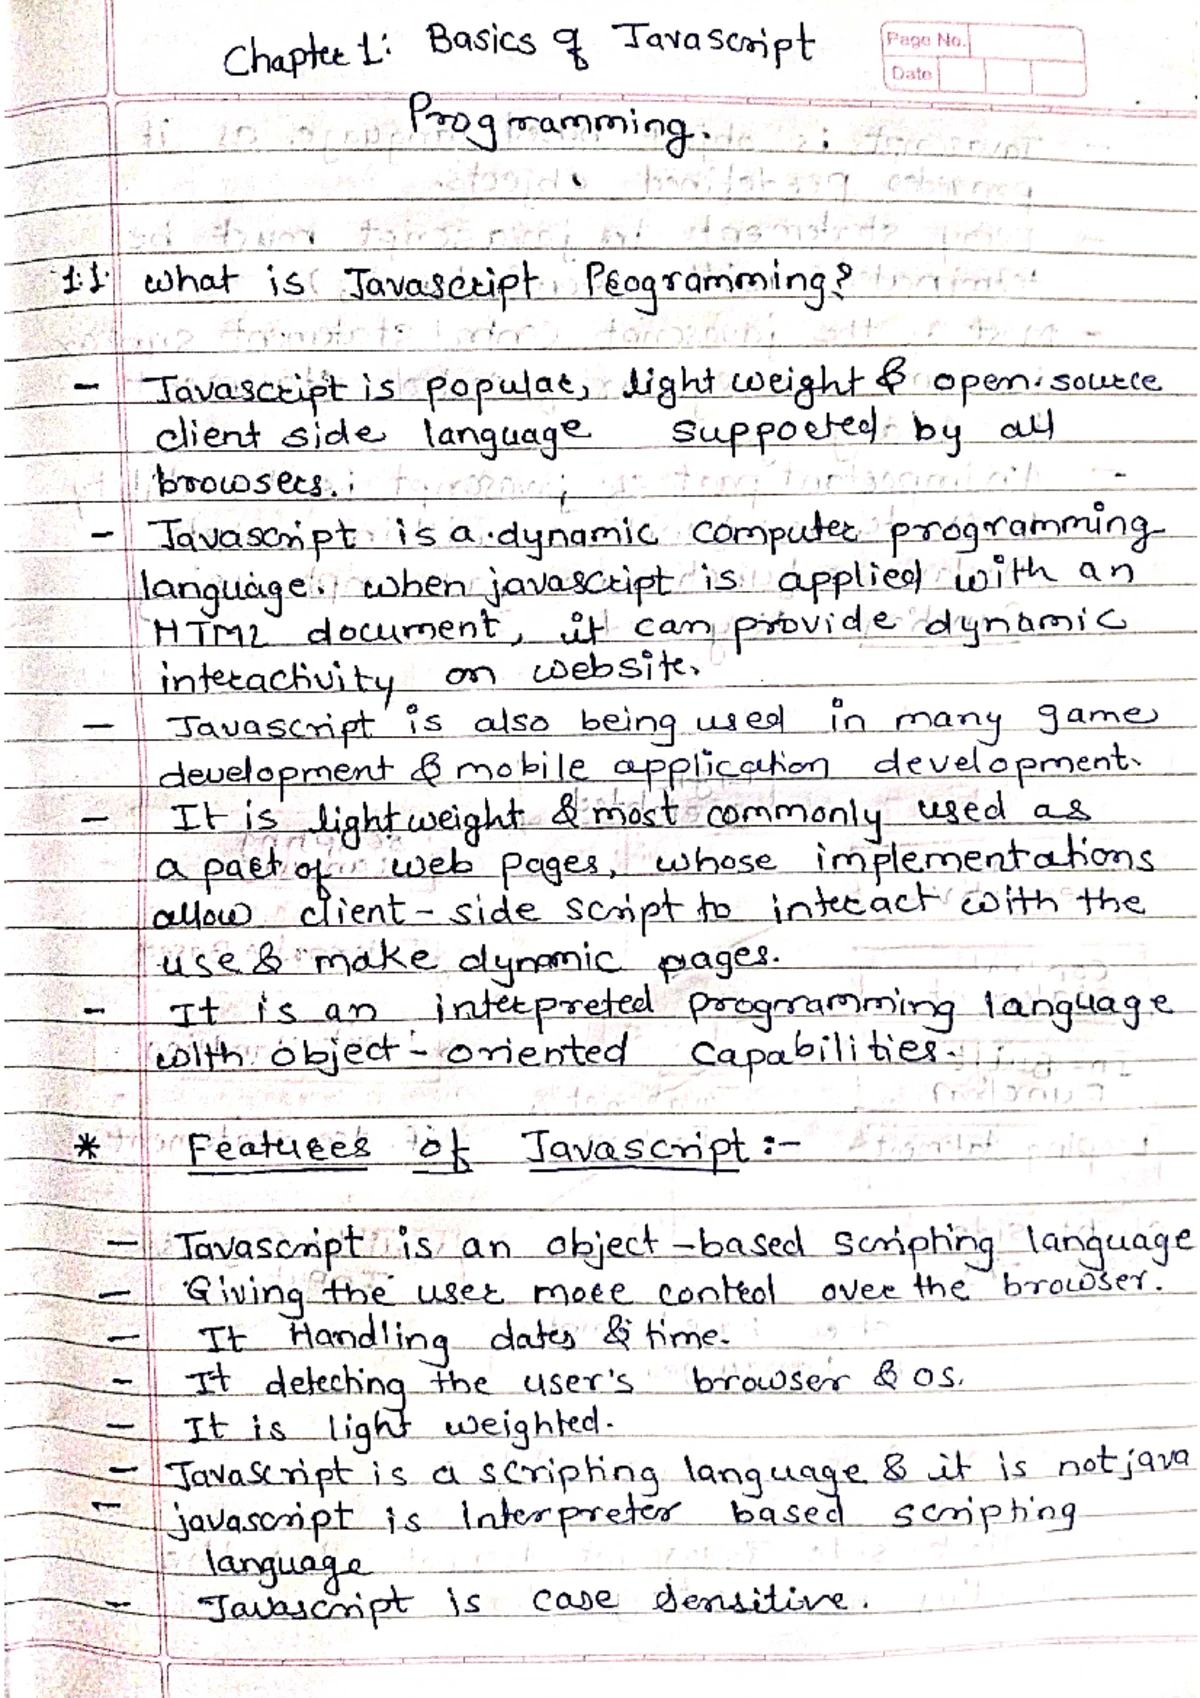 Chapter 1: Basics of Javascript
Page No.
Date
Programming.
1.1 What is Javascript Programming?
- Javascript is popular, light weight & open source
client side language supported by all
browsers.
- Javascript is a dynamic computer programming
language. when javascript is applied with an
HTML document, it can provide dynamic
interactivity on website.
- Javascript is also being used in many game
development & mobile application development.
- It is light weight & most commonly used as
a part of web pages, whose implementations
allow client-side script to interact with the
use & make dynamic pages.
- It is an interpreted programming language
with object-oriented capabilities.
* Features of Javascript :-
- Javascript is an object-based scripting language
- Giving the user more control over the browser.
- It Handling dates & time.
- It detecting the user's browser & OS.
- It is light weighted.
- Javascript is a scripting language & it is not java
- javascript is Interpreter based scripting
language
- Javascript is case sensitive.